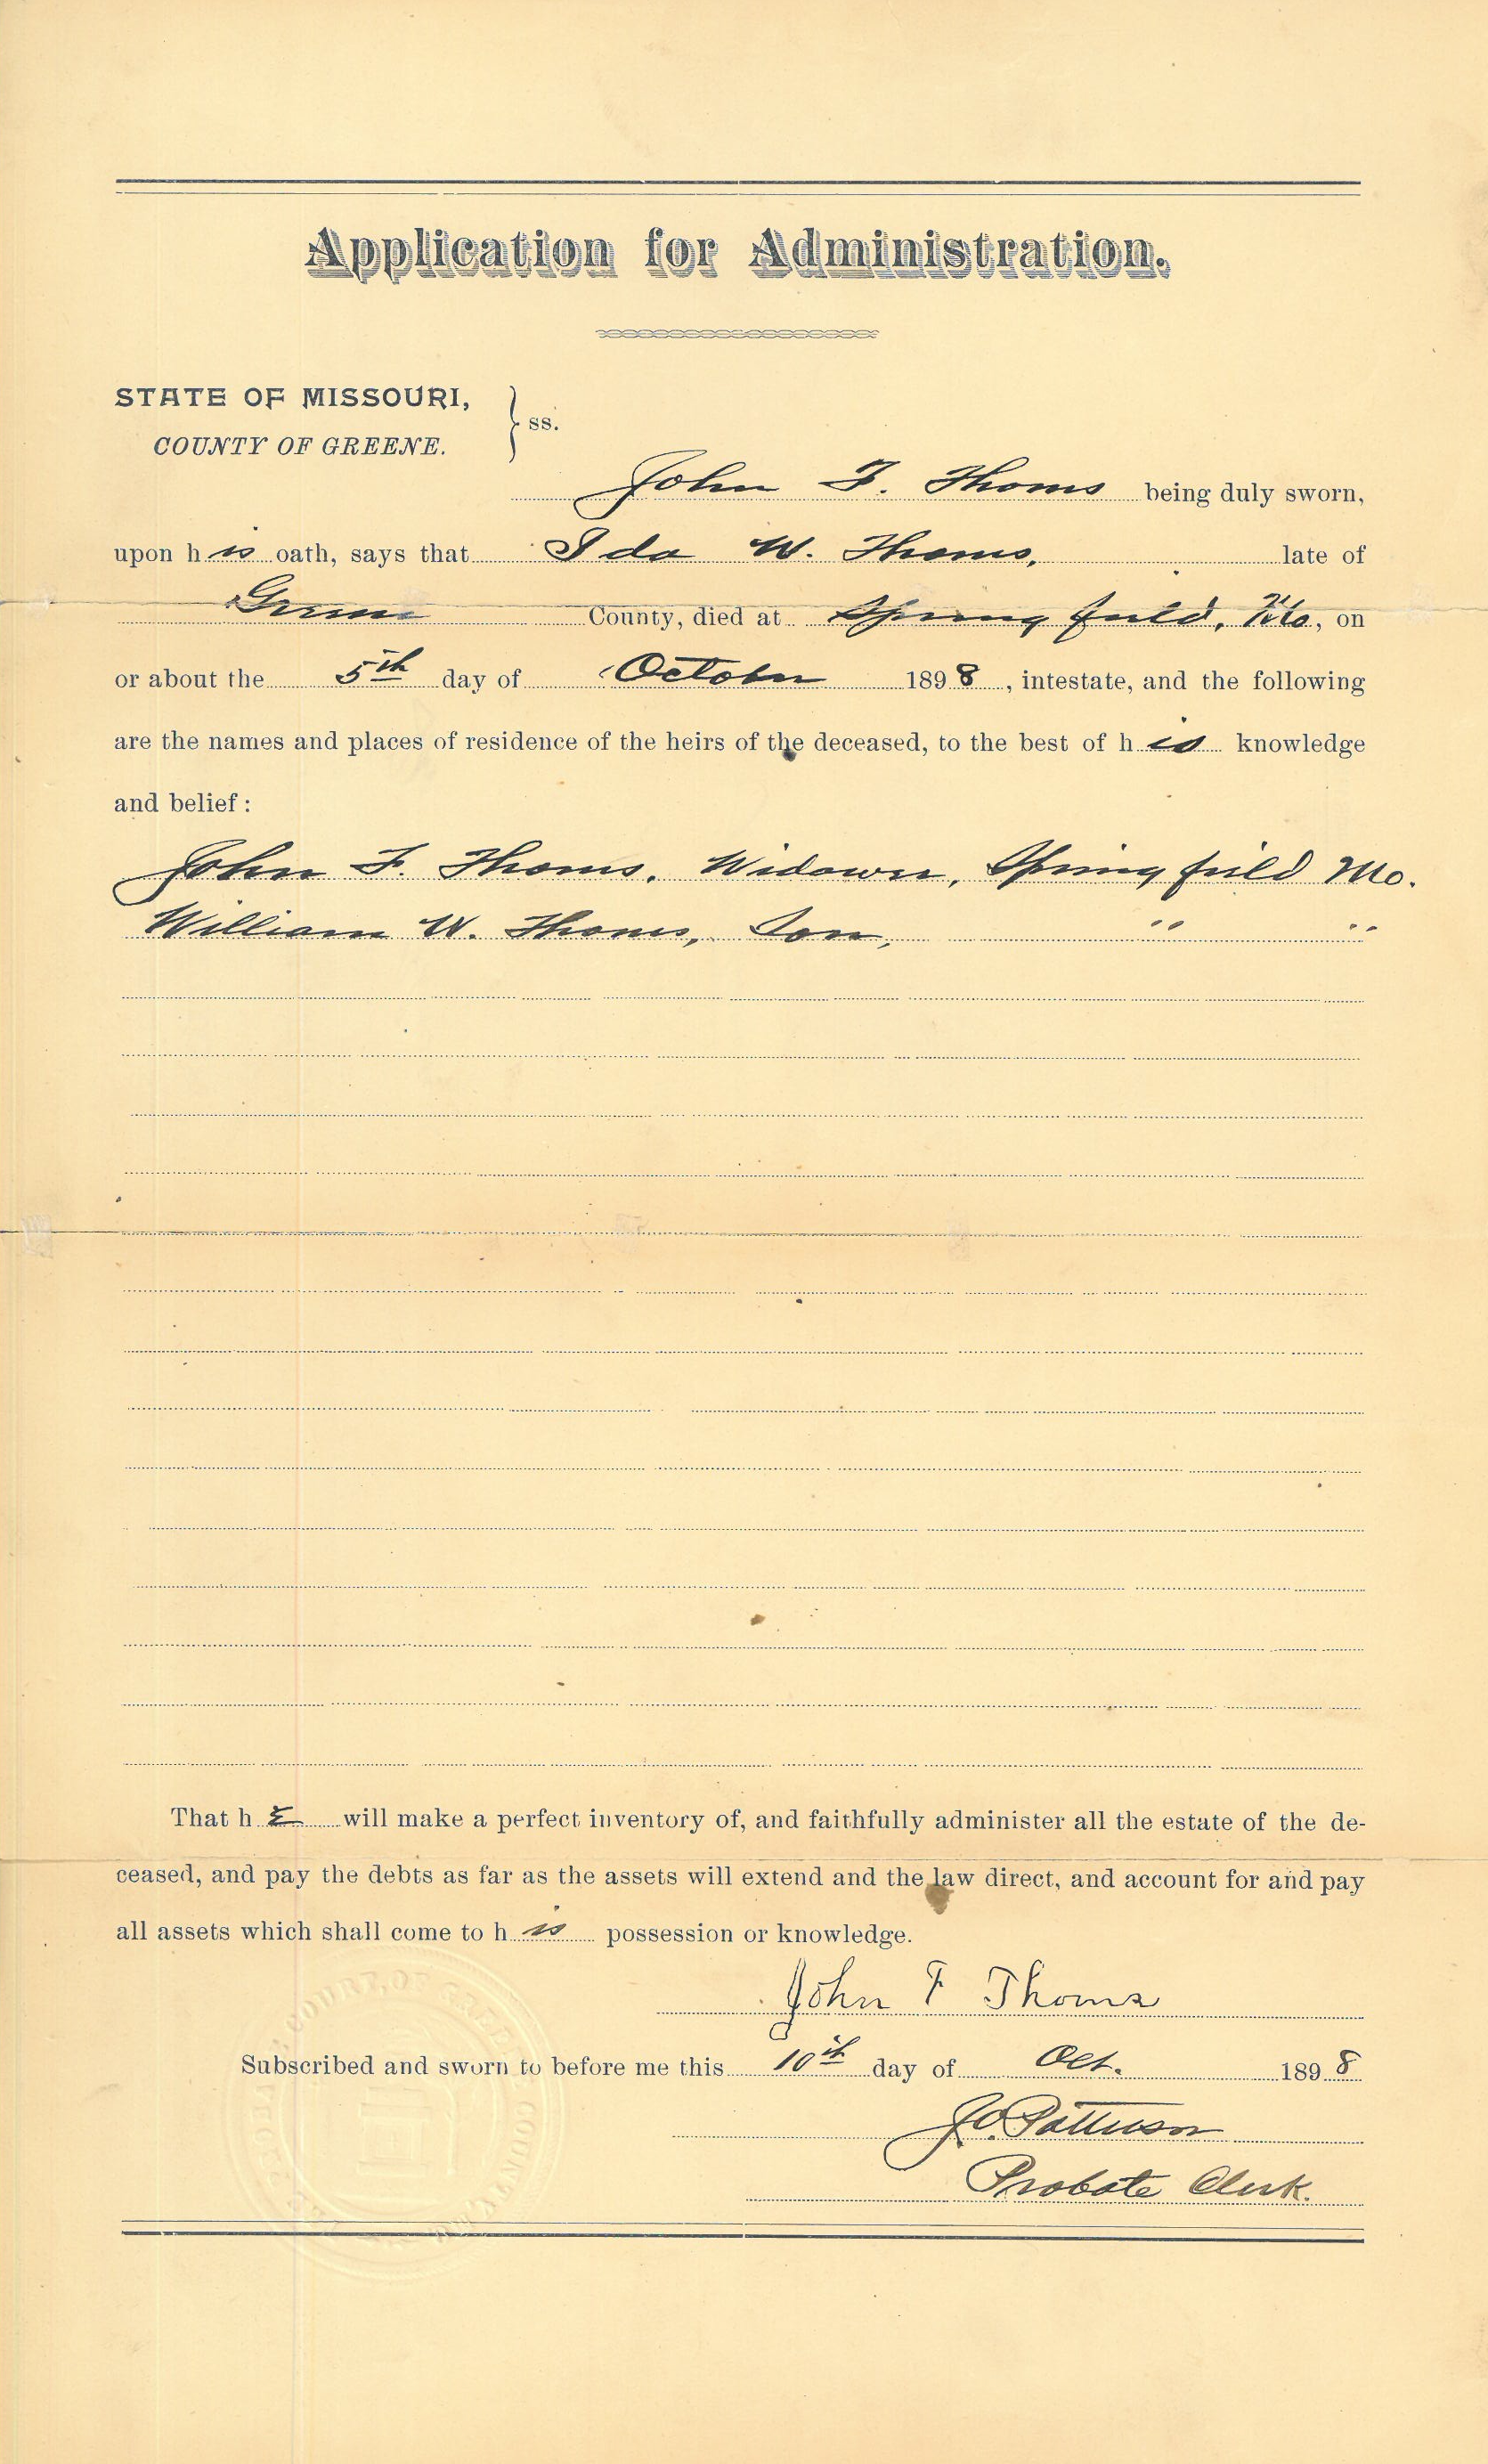 Application for Administration.
STATE OF MISSOURI,
COUNTY OF GREENE. } ss.
John F. Thoms being duly sworn,
upon his oath, says that Ida W. Thoms, late of
Greene County, died at Springfield, Mo, on
or about the 5th day of October 1898, intestate, and the following
are the names and places of residence of the heirs of the deceased, to the best of his knowledge
and belief:
John F. Thoms, Widower, Springfield Mo.
William W. Thoms, Son, " "
That he will make a perfect inventory of, and faithfully administer all the estate of the de-
ceased, and pay the debts as far as the assets will extend and the law direct, and account for and pay
all assets which shall come to his possession or knowledge.
John F Thoms
Subscribed and sworn to before me this 10th day of Oct. 1898
J.O. Patterson
Probate Clerk.
COURT, OF GREENE COUNTY